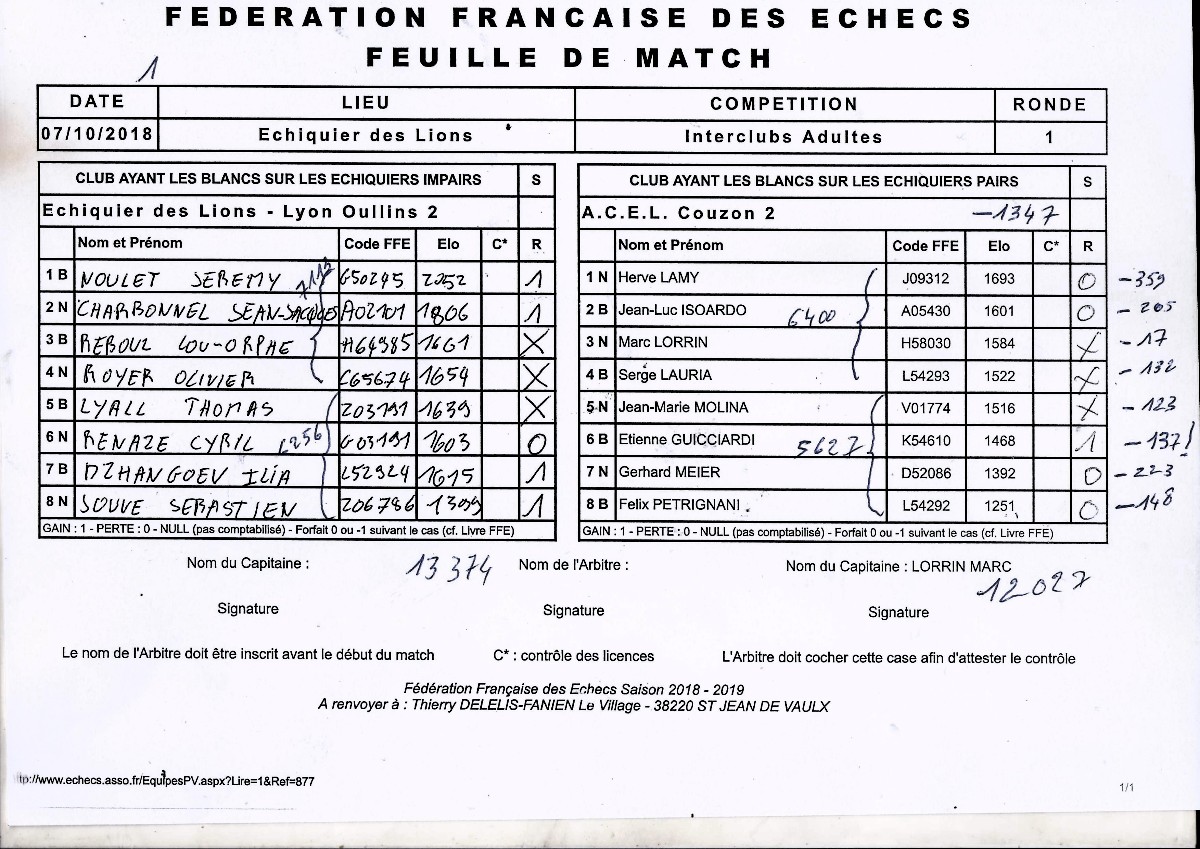 FEDERATION FRANCAISE DES ECHECS
FEUILLE DE MATCH
1
DATE LIEU COMPETITION RONDE
07/10/2018 Echiquier des Lions Interclubs Adultes 1
CLUB AYANT LES BLANCS SUR LES ECHIQUIERS IMPAIRS S CLUB AYANT LES BLANCS SUR LES ECHIQUIERS PAIRS S
Echiquier des Lions - Lyon Oullins 2 A.C.E.L. Couzon 2 -1347
Nom et Prénom Code FFE Elo C* R Nom et Prénom Code FFE Elo C* R
1 B NOULET JEREMY G50245 2052 1 1 N Herve LAMY J09312 1693 0 -359
2 N CHARBONNEL JEAN-JACQUES A02101 1806 1 2 B Jean-Luc ISOARDO 6400 A05430 1601 0 -205
3 B REBOUL LOU-ORPHE H64385 1601 X 3 N Marc LORRIN H58030 1584 X -17
4 N ROYER OLIVIER C65674 1654 X 4 B Serge LAURIA L54293 1522 X -132
5 B LYALL THOMAS Z03191 1639 X 5 N Jean-Marie MOLINA V01774 1516 X -123
6 N RENAZE CYRIL 6256 G03191 1603 0 6 B Etienne GUICCIARDI 5627 K54610 1468 1 -137!
7 B DZHANGOEV ILIA L52924 1615 1 7 N Gerhard MEIER D52086 1392 0 -223
8 N JOUVE SEBASTIEN Z06786 1399 1 8 B Felix PETRIGNANI L54292 1251 0 -148
GAIN : 1 - PERTE : 0 - NULL (pas comptabilisé) - Forfait 0 ou -1 suivant le cas (cf. Livre FFE) GAIN : 1 - PERTE : 0 - NULL (pas comptabilisé) - Forfait 0 ou -1 suivant le cas (cf. Livre FFE)
Nom du Capitaine : 13374 Nom de l'Arbitre : Nom du Capitaine : LORRIN MARC
12027
Signature Signature Signature
Le nom de l'Arbitre doit être inscrit avant le début du match C* : contrôle des licences L'Arbitre doit cocher cette case afin d'attester le contrôle
Fédération Française des Echecs Saison 2018 - 2019
A renvoyer à : Thierry DELELIS-FANIEN Le Village - 38220 ST JEAN DE VAULX
tp://www.echecs.asso.fr/EquipesPV.aspx?Lire=1&Ref=877
1/1